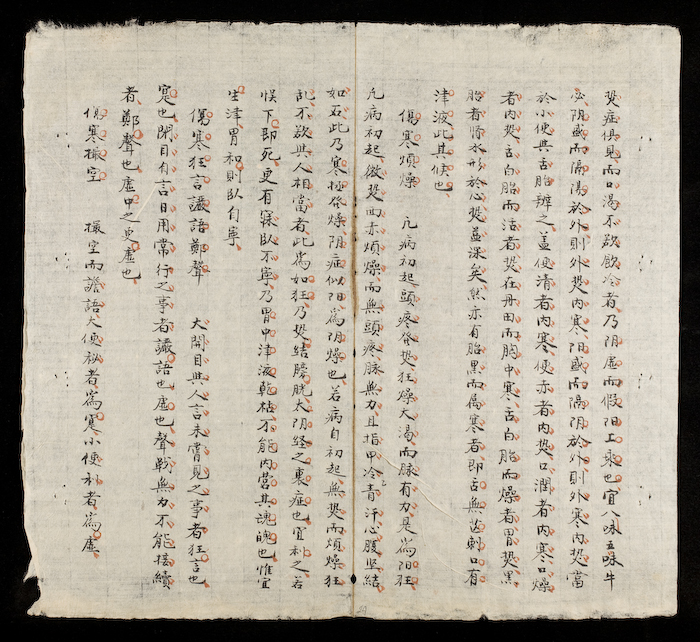 热症俱見而口渴不欲飲冷者乃阴虚而假阳上乘也宜八味五味牛
必阴盛而隔阳於外則外热内寒阳盛而隔阴於外則外寒内热當
於小便與舌胎辨之盖便清者内寒便赤者内热口潤者内寒口燥
者内热舌白胎而活者热在丹田而胸中寒舌白胎而燥者胃热黑
胎者悟水形於心热益深矣然亦有胎黑而属寒者即舌無芒刺口有
津液此其候也
伤寒煩燥 凡病初起頭疼發热狂燥大渴而脉有力是為阳狂
凡病初起微热面赤煩燥而無頭疼脉無力且指甲冷青汗心腹坚結
如石此乃寒極發燥阴症似阳為阴燥也若病自初起無热而煩燥狂
乱不欲與人相當者此為如狂乃热結膀胱太阴経之裏症也宜利之若
悮下即死更有寐臥不寧乃胃中津液乾枯不能内营其魂魄也惟宜
生津胃和則臥自寧
傷寒狂言讝語鄭聲 大開目與人言未嘗見之事者狂言也
寔也開目有言日用常行之事者讝語也虚也聲戰無力不能接續
者鄭聲也虚中之更虚也
伤寒撮空 撮空而譫語大便秘者為寒小便利者為虚